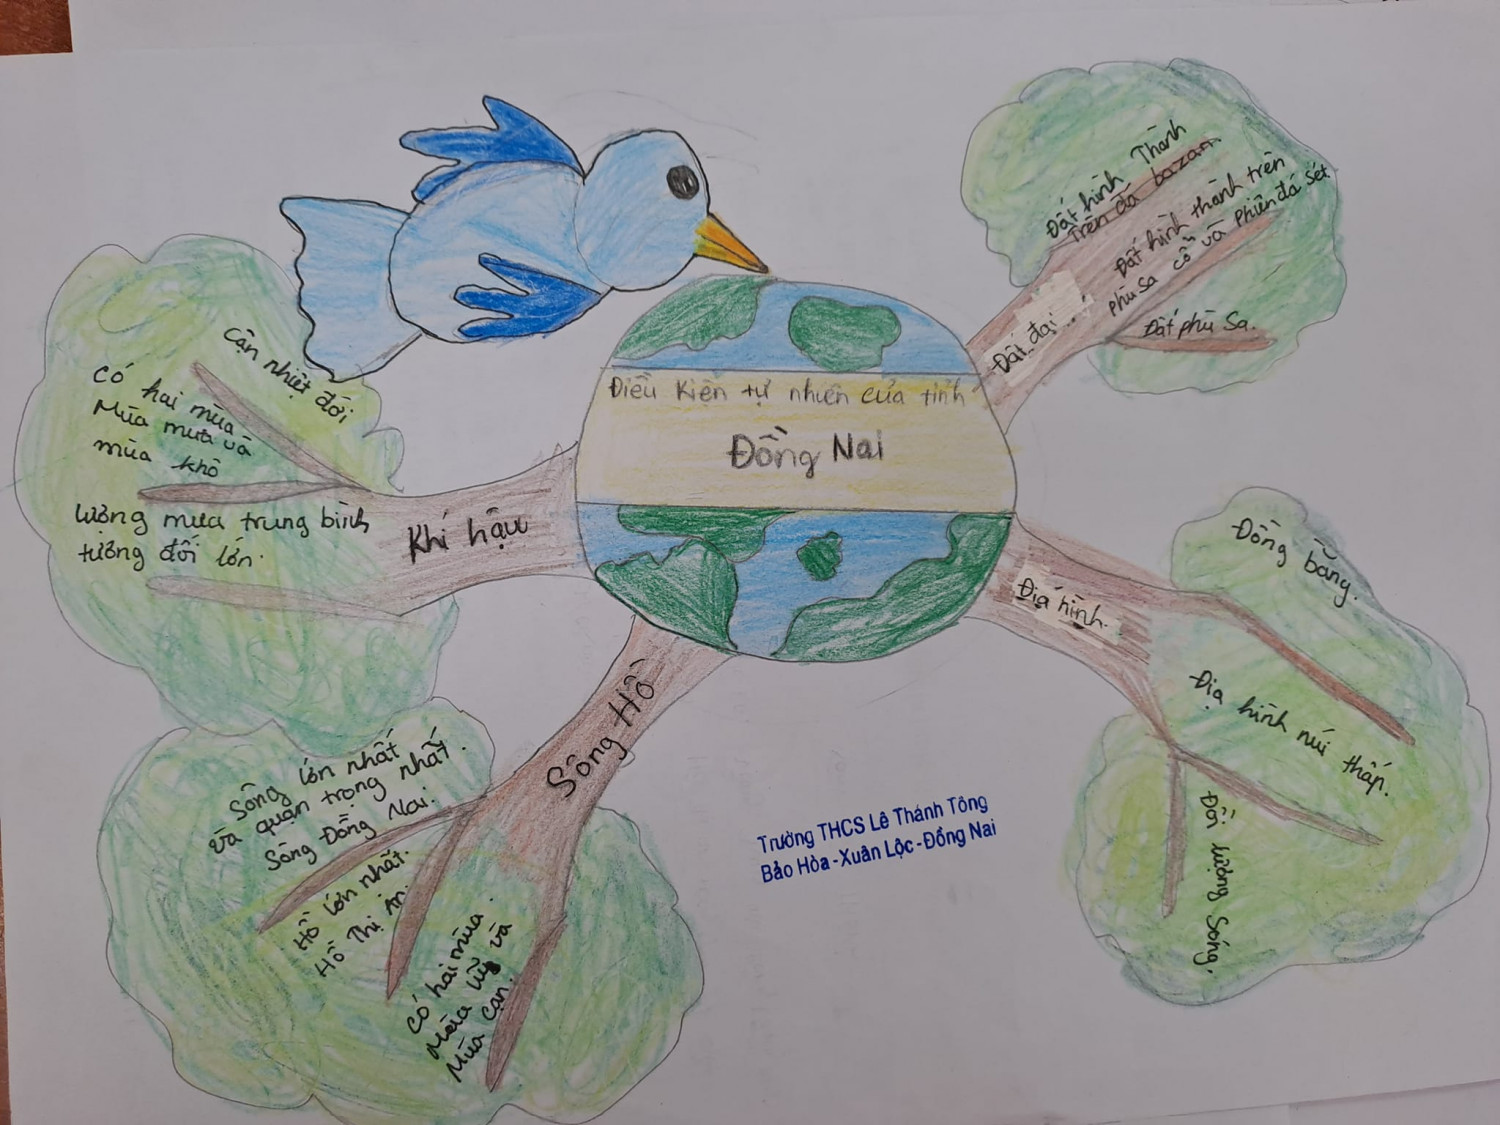 Điều kiện tự nhiên của tỉnh
Đồng Nai
Khí hậu
Cận nhiệt đới
Có hai mùa
Mùa mưa và
mùa khô
Lượng mưa trung bình
tương đối lớn.
Sông Hồ
Sông lớn nhất
và quận trọng nhất.
Sông Đồng Nai.
Hồ lớn nhất.
Hồ Thị An.
Có hai mùa.
Mùa lũy và
Mùa cạn.
Đất đai
Đất hình Thành
Trên đá bazan
Đất hình thành trên
phù sa cổ và Phiến đá sét
Đất phù Sa.
Địa hình.
Đồng bằng.
Địa hình núi thấp.
Đồi lượng Sóng.
Trường THCS Lê Thánh Tông
Bảo Hòa-Xuân Lộc-Đồng Nai